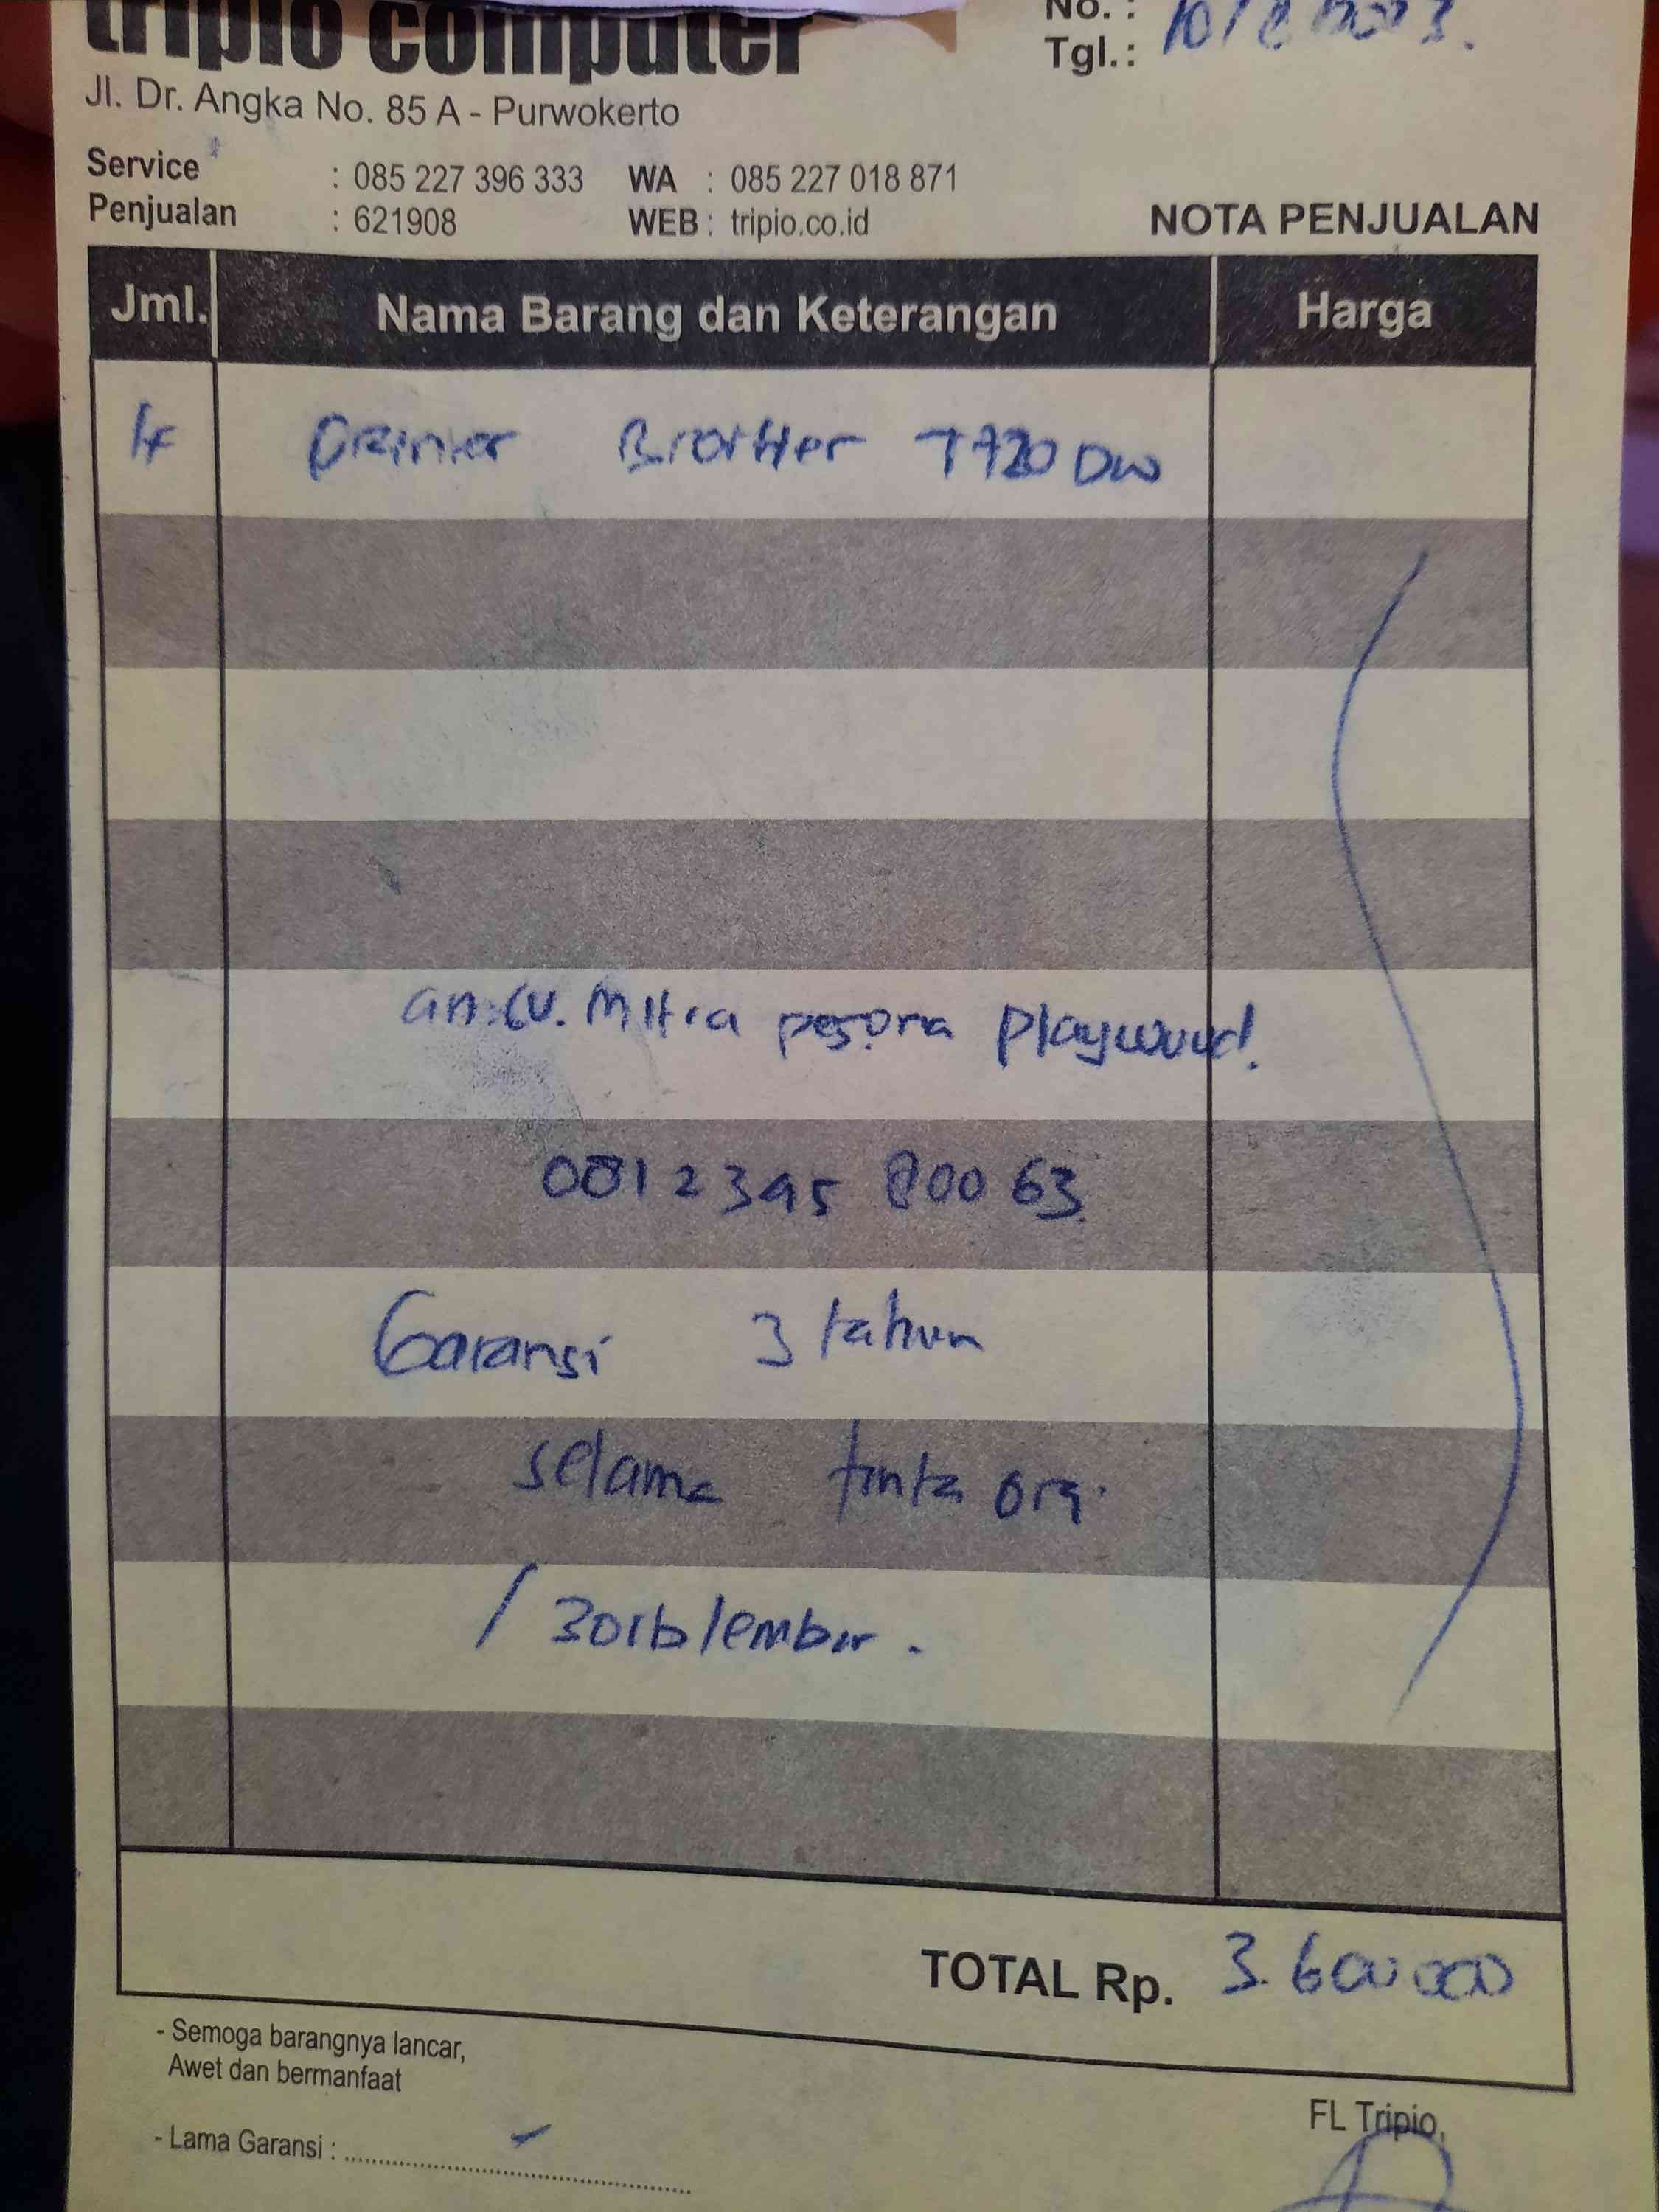 tripio computer
No. :
Tgl.: 10/8/2023.
Jl. Dr. Angka No. 85 A - Purwokerto
Service : 085 227 396 333 WA : 085 227 018 871
Penjualan : 621908 WEB : tripio.co.id
NOTA PENJUALAN
Jml. Nama Barang dan Keterangan Harga
Printer Brother T720 DW
an. CV. Mitra pesona Playwood.
Garansi 3 tahun
selama tinta ori.
/ 30rb lembar.
TOTAL Rp. 3.600 000
- Semoga barangnya lancar,
Awet dan bermanfaat
- Lama Garansi :
FL Tripio,